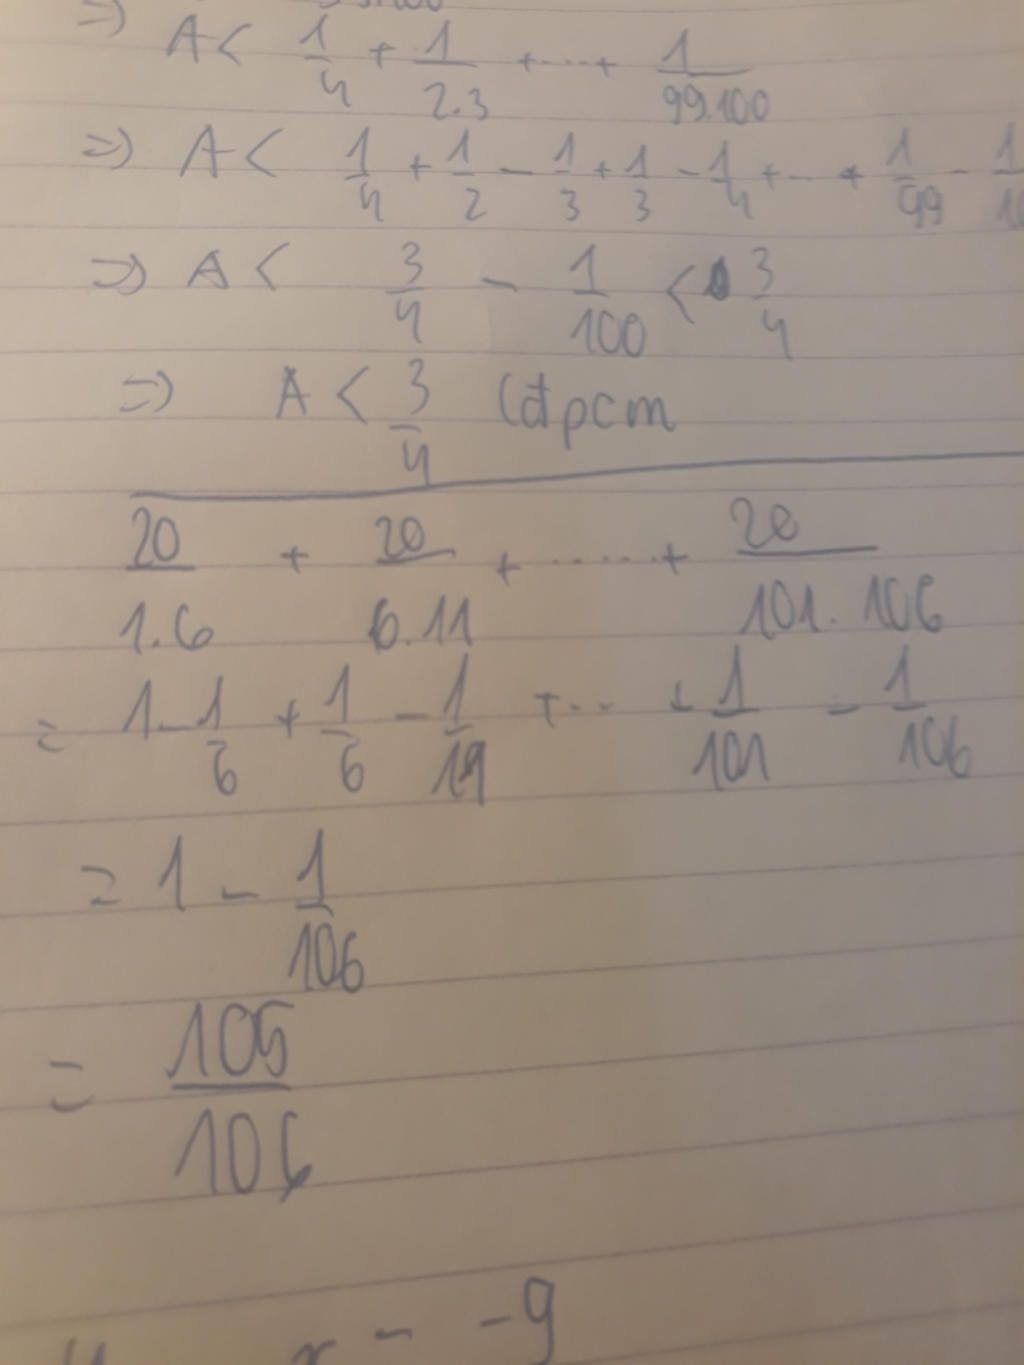 => A < 1/4 + 1/2.3 +....+ 1/99.100
=> A < 1/4 + 1/2 - 1/3 + 1/3 - 1/4 +...+ 1/99 -
=> A < 3/4 - 1/100 < 3/4
=> A < 3/4 (đpcm
20/1.6 + 20/6.11 + ......+ 20/101.106
= 1 - 1/6 + 1/6 - 1/11 +... + 1/101 - 1/106
= 1 - 1/106
= 105/106
x - -9